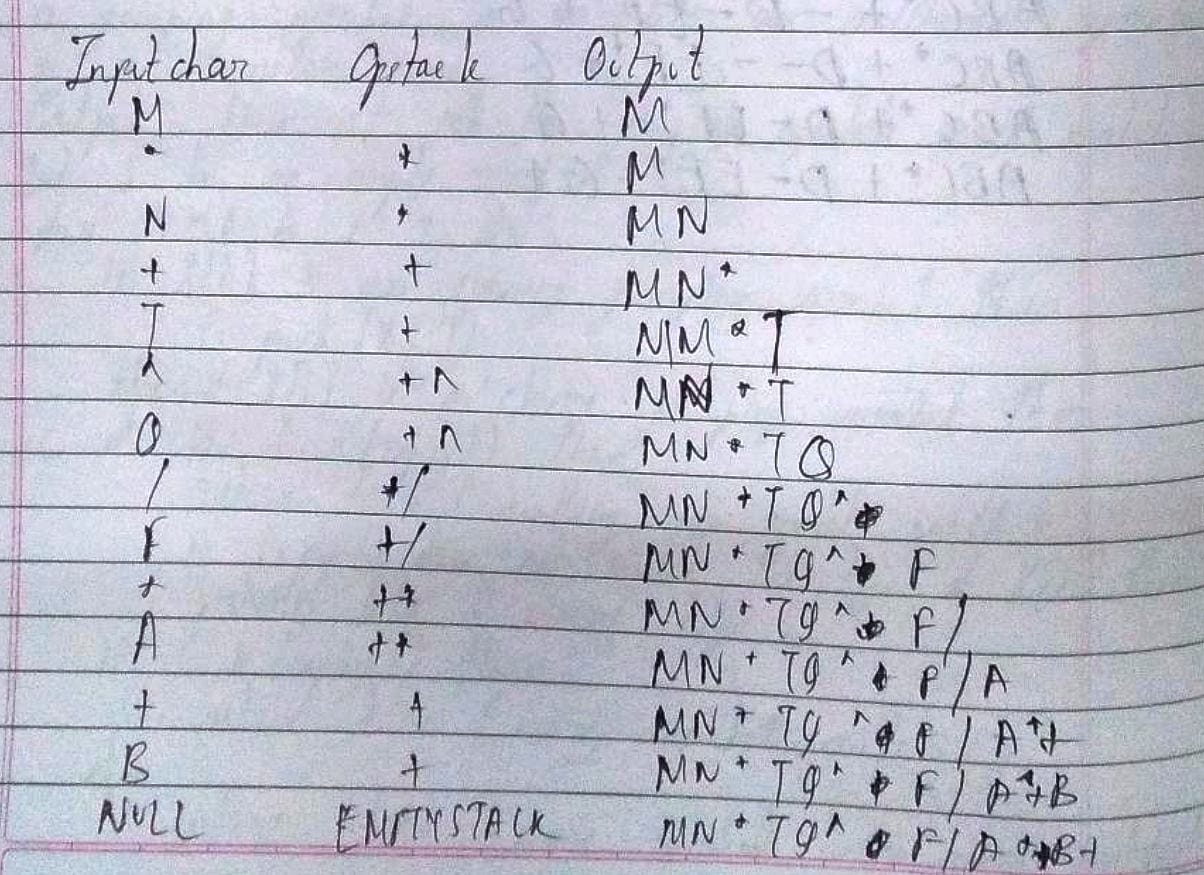 Input char Opstack Output
M M
* * M
N * MN
+ + MN*
T + NM*T
^ +^ MN*T
Q +^ MN*TQ
/ +/ MN*TQ^
F +/ MN*TQ^ F
* +* MN*TQ^ F/
A +* MN*TQ^ F/A
+ + MN*TQ^ F/A*+
B + MN*TQ^ F/A*+B
NULL EMPTYSTACK MN*TQ^ F/A*+B+